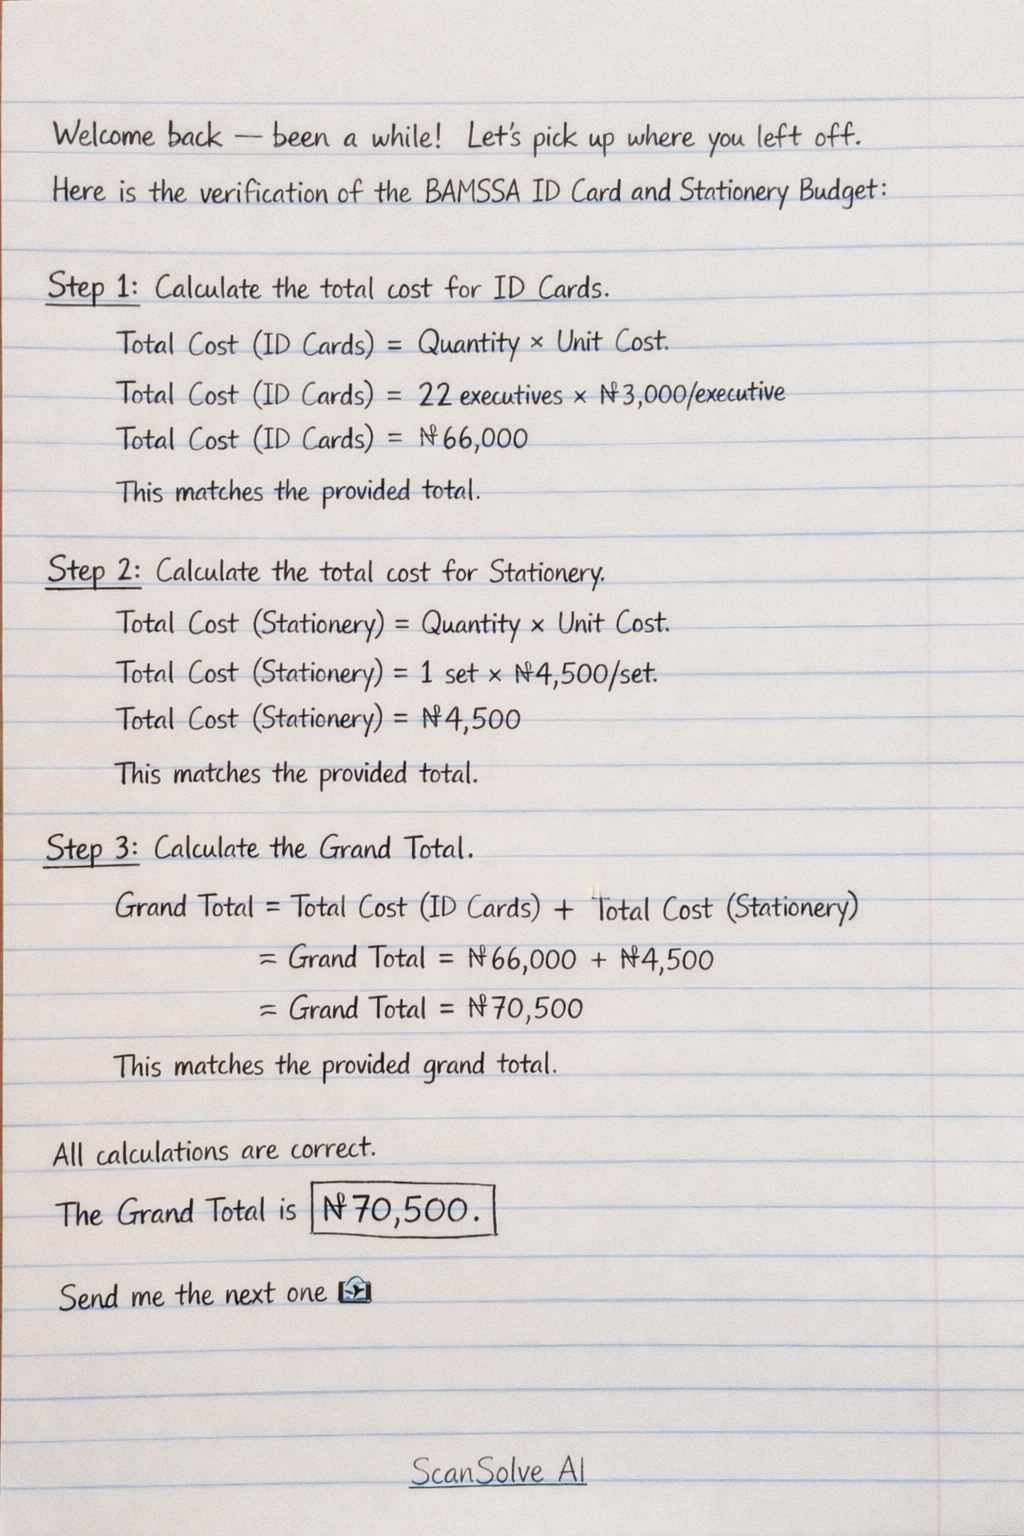 Welcome back — been a while! Let's pick up where you left off.
Here is the verification of the BAMSSA ID Card and Stationery Budget:
Step 1: Calculate the total cost for ID Cards.
Total Cost (ID Cards) = Quantity × Unit Cost.
Total Cost (ID Cards) = 22 executives × ₦3,000/executive
Total Cost (ID Cards) = ₦66,000
This matches the provided total.
Step 2: Calculate the total cost for Stationery.
Total Cost (Stationery) = Quantity × Unit Cost.
Total Cost (Stationery) = 1 set × ₦4,500/set.
Total Cost (Stationery) = ₦4,500
This matches the provided total.
Step 3: Calculate the Grand Total.
Grand Total = Total Cost (ID Cards) + Total Cost (Stationery)
= Grand Total = ₦66,000 + ₦4,500
= Grand Total = ₦70,500
This matches the provided grand total.
All calculations are correct.
The Grand Total is ₦70,500.
Send me the next one
ScanSolve AI